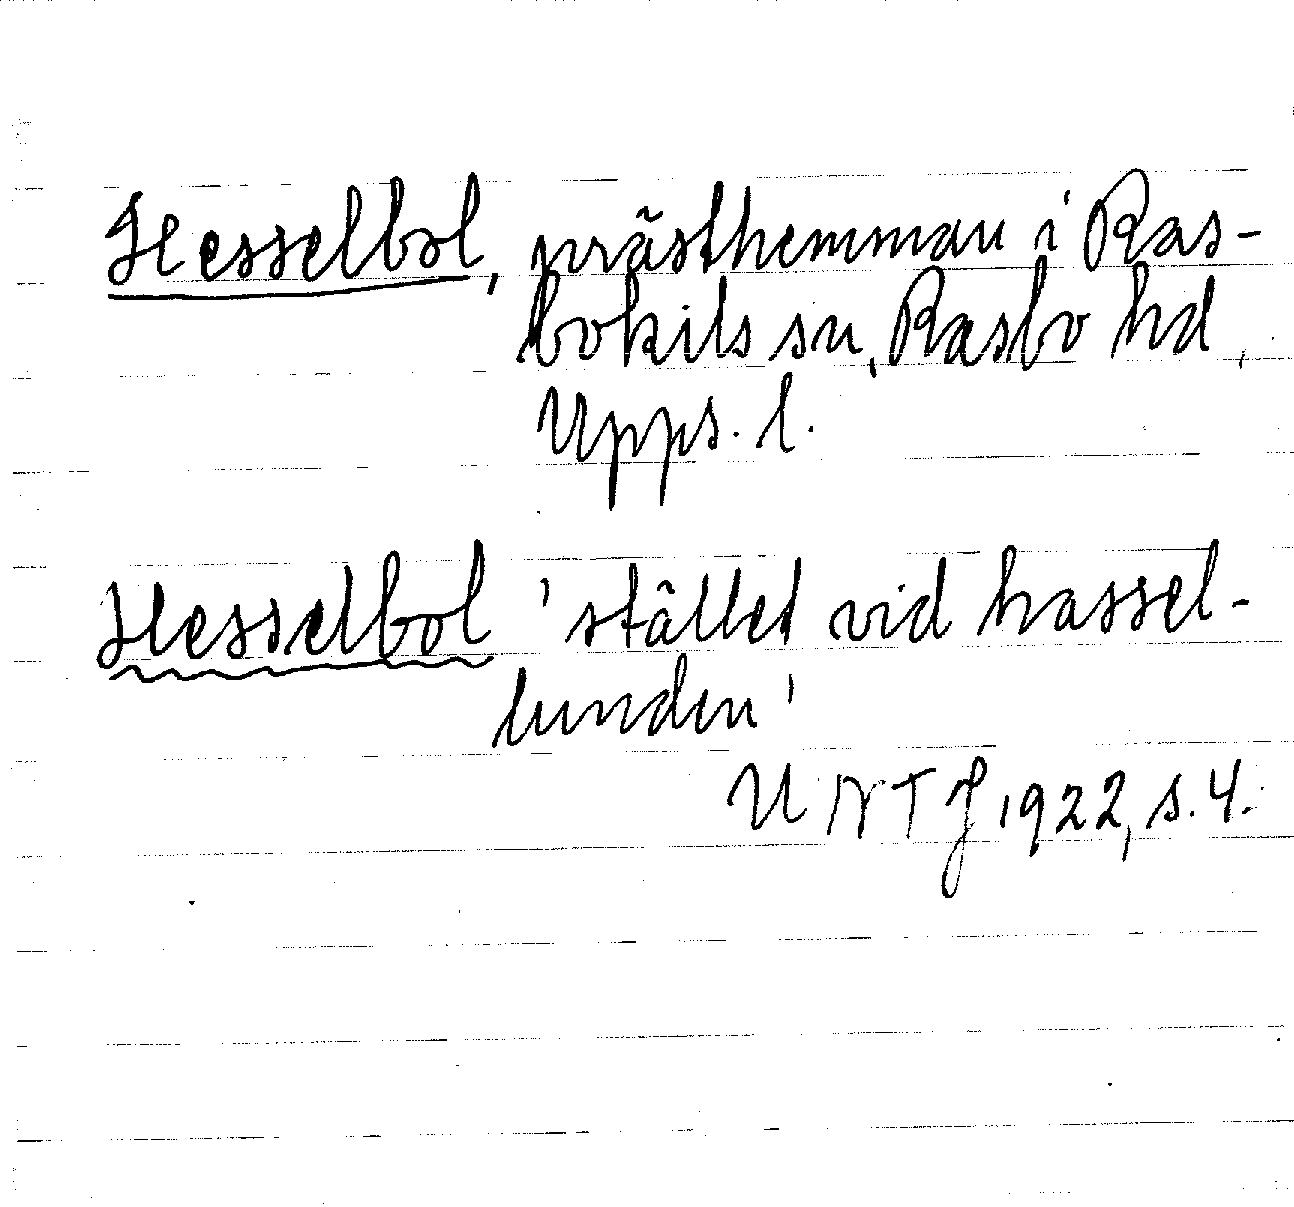 Hesselbol, prästhemman i Ras-
bokils sn, Rasbo hd,
Upps. l.
Hesselbol 'stället vid hassel-
lunden'
UNTJ 1922, s. 4.